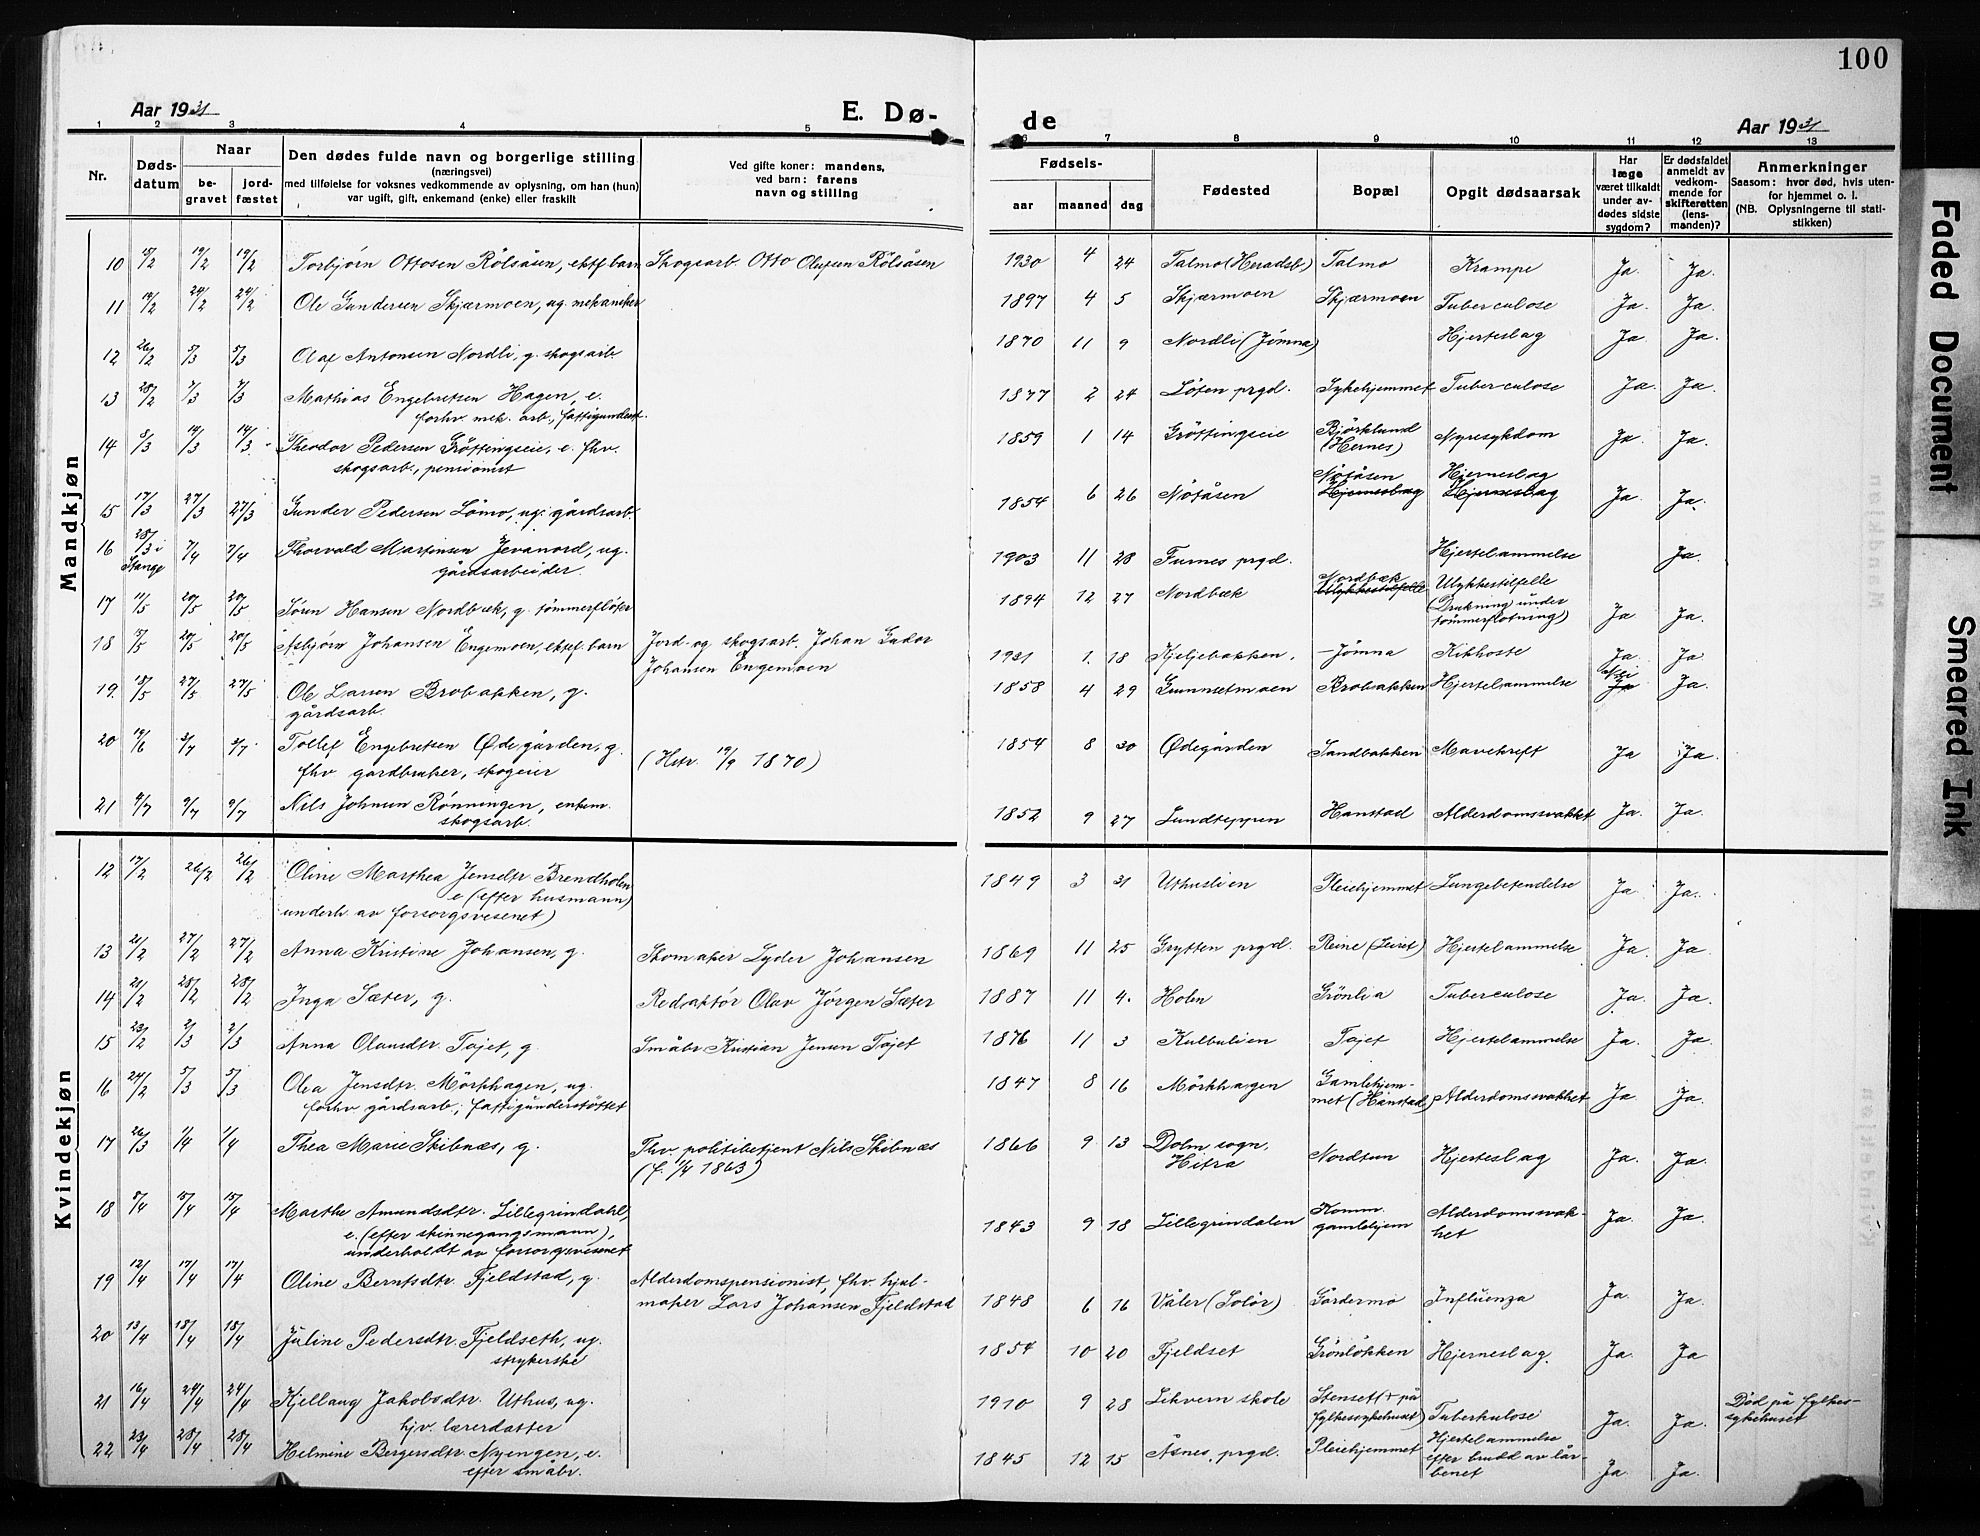 100
Aar 1931
E. Dø-
de
Aar 1931
1 2 3 4 5 6 7 8 9 10 11 12 13
Nr.
Døds-
datum
Naar
be-
gravet
jord-
fæstet
Den dødes fulde navn og borgerlige stilling
(næringsvei)
med tilføielse for voksnes vedkommende av oplysning, om han (hun)
var ugift, gift, enkemand (enke) eller fraskilt
Ved gifte koner: mandens,
ved barn: farens
navn og stilling
Fødsels-
aar
maaned
dag
Fødested
Bopæl
Opgit dødsaarsak
Har
læge
været tilkaldt
under av-
dødes sidste
sygdom?
Er dødsfaldet
anmeldt av
vedkom-
mende for
skifteretten
(lens-
manden)?
Anmerkninger
Saasom: hvor død, hvis uten-
for hjemmet o. l.
(NB. Oplysningerne til stati-
stikken)
Mandkjøn
10 15/2 19/2 19/2 Torbjørn Ottosen Rölsåsen, ektf. barn Skogsarb. Otto Olufsen Rölsåsen 1930 4 24 Talmo (Heradsb.) Talmo Krampe Ja Ja.
11 19/2 24/2 24/2 Ole Gundersen Skjærmoen, ug. mekaniker 1897 4 5 Skjærmoen Skjærmoen Tuberculose Ja. Ja.
12 26/2 5/3 5/3 Olaf Antonsen Nordli, g. skogsarb 1870 11 9 Nordli (Jömna) Hjerteslag Ja Ja.
13 28/2 7/3 7/3 Mathias Engebretsen Hagen, e. 1877 2 24 Löten prgd. Sykehjemmet Tuberculose Ja. Ja.
forhv. mek. arb., fattigunderst.
14 8/3 14/3 14/3 Theodor Pedersen Gröttingseie, e. fhv. 1859 1 14 Gröttingseie Björklund (Hernes) Nyresykdom Ja Ja.
skogsarb., pensionist
15 17/3 27/3 27/3 Gunder Pedersen Lömo, ug. gårdsarb. 1854 6 26 Nötåsen Nötåsen Hjerneslag Ja. Ja.
16 28/3 i Stange 7/4 7/4 Thorvald Martinsen Jevanord, ug. 1903 11 28 Furnes prgd. Hjertelammelse Ja.
gårdsarbeider.
17 11/5 20/5 20/5 Sören Hansen Nordbæk, g. tömmerflöter 1894 12 27 Nordbæk Nordbæk Ulykkestilfelle
(Drukning under
tömmerflötning) Ja Ja.
18 15/5 20/5 20/5 Asbjörn Johansen Engemoen, ektef. barn Jord- og skogsarb. Johan Gudor 1931 1. 18 Kjeljebakken. - Jömna Kikhoste Ja. Ja
Johansen Engemoen
19. 18/5 27/5 27/5 Ole Larsen Brobakken, g. 1858 4 29 Gunnsetmoen Brobakken Hjertelammelse Nei Ja.
gårdsarb.
20 19/6 3/7 3/7 Tollef Engebretsen Ødegården, g. 1854 8 30 Ødegården Sandbakken Mavekreft Ja Ja.
fhv gardbruker, skogeier (Hstr. 19/9 1870)
21 4/7 9/7 9/7 Nils Johnsen Rønningen, enkem. 1852 9 27 Lundteppen Hanstad Alderdomssvakhet Ja. Ja.
skogsarb.
Kvindekjøn
12 17/2 26/2 26/2 Oline Marthea Jensdtr. Brendholen 1849 3 31 Uthuslien Pleiehjemmet Lungebetendelse Ja Ja.
e (efter husmann)
underh. av forsorgsvesenet)
13 21/2 27/2 27/2 Anna Kristine Johansen, g. Skomaker Lyder Johansen 1869 11 25 Grytten prgd. Reine (Leiret) Hjertelammelse Ja. Ja
14 21/2 28/2 28/2 Inga Sæter, g. Redaktör Olav Jörgen Sæter 1887 11 4. Holen Grönlia Tuberculose Ja. Ja.
15 23/2 2/3 2/3 Anna Olausdtr. Tajet, g. Småbr. Kristian Jensen Tajet 1876 11 3 Kulbulien Tajet Hjertelammelse Ja. Ja.
16 24/2 5/3 5/3 Olea Jensdtr. Mörkhagen, ug. 1847 8 16 Mörkhagen Gamlehjem-
met (Hanstad) Alderdomssvakhet Ja. Ja.
forhv gårdsarb.; fattigunderstöttet
17 26/3 1/4 1/4 Thea Marie Skibnæs, g. Fhv. politibetjent Nils Skibnæs 1866 9 13 Dolm sogn,
Hitra Nordtun Hjerteslag Ja. Ja.
(f. 1/4 1863)
18 8/4 15/4 15/4 Marthe Amundsdtr. Lillegrindahl, 1843 9 18 Lillegrindalen Komm.
gamlehjem Alderdomssvak-
het Ja. Ja.
e. (efter skinnegangsmann),
underholdt av forsorgsvesenet
19 12/4 17/4 17/4 Oline Berntsdtr. Fjeldstad, g. Alderdomspensionist, fhv. hjul-
maker Lars Johansen Fjeldstad 1848 6 16 Våler (Solör) Gardermo Influenza Ja. Ja.
20 13/4 18/4 18/4 Juline Pedersdtr. Fjeldseth, ug. 1854 10 20 Fjeldset Grönlökken Hjerneslag. Ja. Ja
strykerske
21 16/4 24/4 24/4 Kjellaug Jakobsdtr. Uthus, ug. 1910 9 28 Lihvern skole Stenset (+ på
fylkessykehuset) Tuberkulose Ja. Ja. Död på fylkes-
sykehuset
hjv. lærerdatter
22 23/4 28/4 28/4 Helmine Bergersdtr. Nyengen, e. 1845 12 15 Åsnes, prgd. Pleiehjemmet Hjertelammelse
efter brudd av lår-
benet Ja Ja.
efter småbr.
Faded Document
Smeared Ink